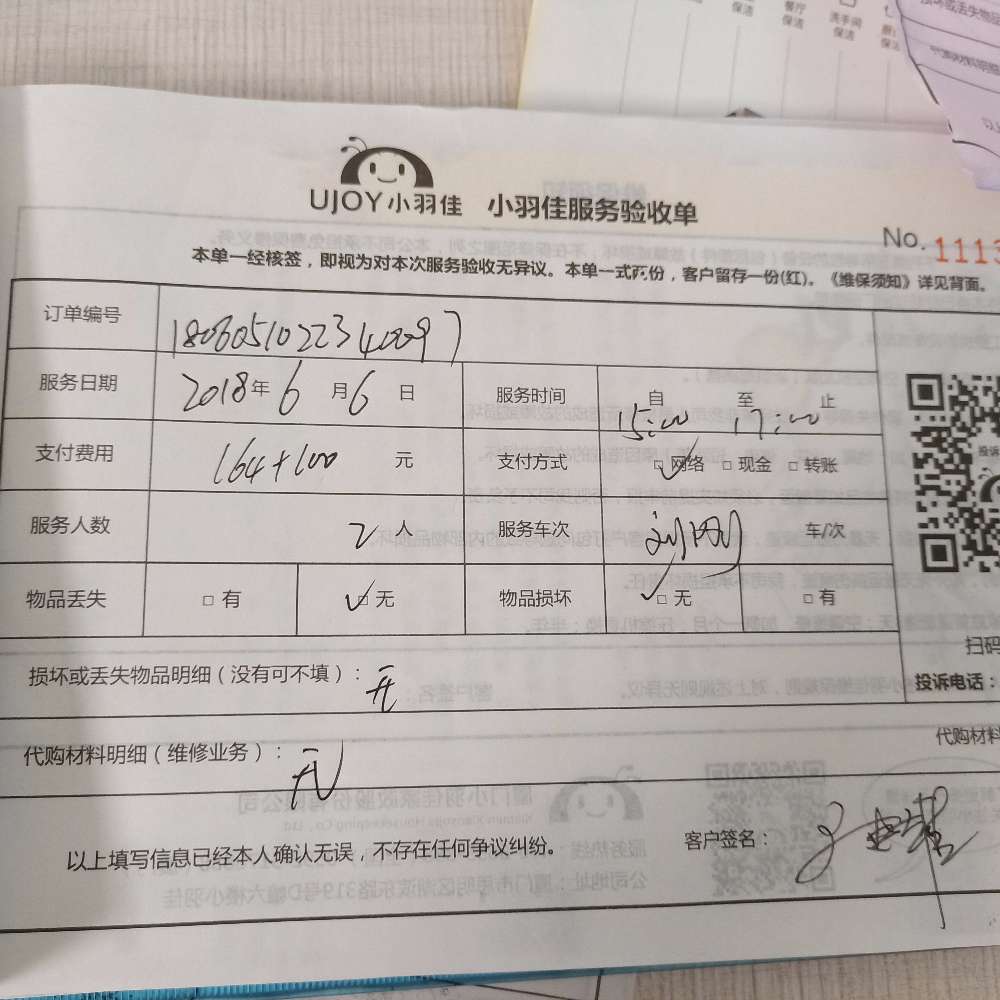 保洁
餐厅
保洁
洗手间
保洁
UJOY小羽佳 小羽佳服务验收单
No. 1113
本单一经核签，即视为对本次服务验收无异议。本单一式两份，客户留存一份(红)。《维保须知》详见背面。
订单编号 1806051022340097
服务日期 2018年6月6日 服务时间 自15:00至17:00止
支付费用 164+100元 支付方式 ☑网络 □现金 □转账
服务人数 2人 服务车次 车/次
物品丢失 □有 ☑无 物品损坏 ☑无 □有
扫码
投诉电话：
损坏或丢失物品明细（没有可不填）：无
代购材料明细（维修业务）：无
代购材料
以上填写信息已经本人确认无误，不存在任何争议纠纷。
客户签名：